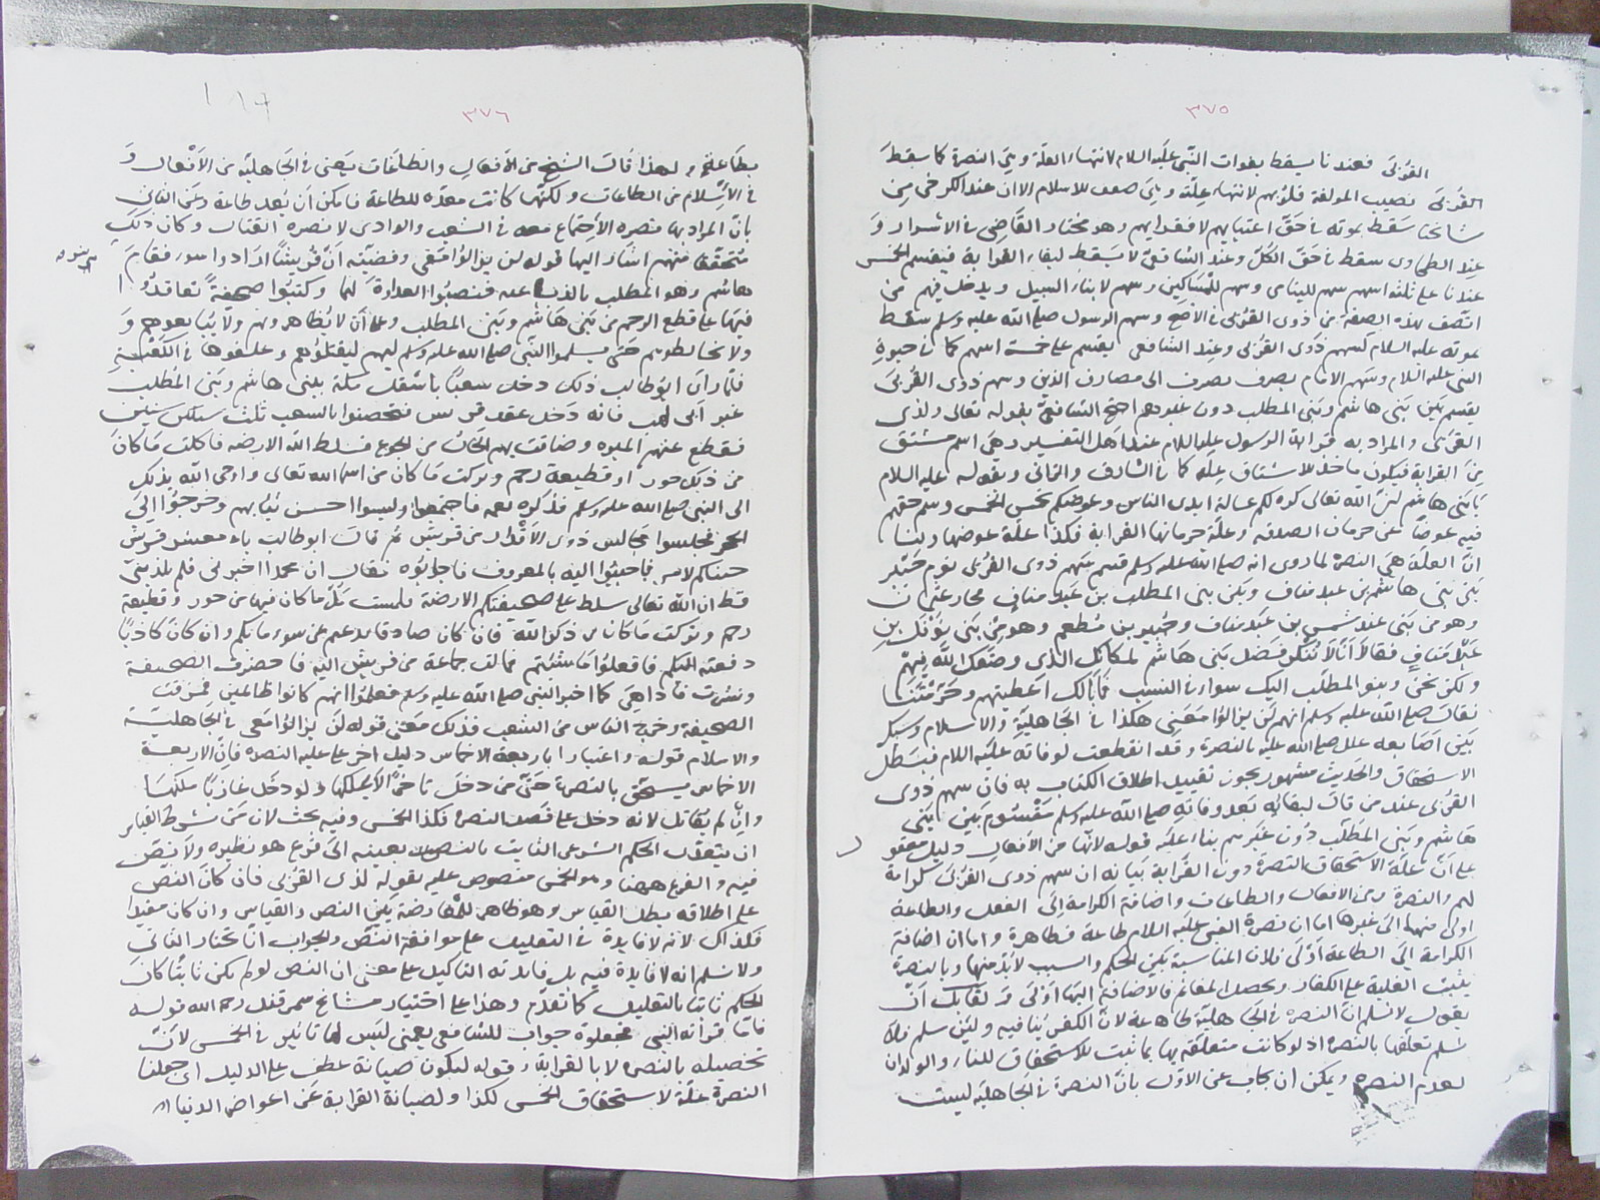 ٣٧٥
القربى فعندنا يسقط بفوات النبى عليه السلام لانتهاء العلة وهى النصرة كما سقط
القربى نصيب المولفة قلوبهم لانتهاء علته وهى ضعف الاسلام الا ان عند الكرخى من
مشايخنا سقط بموته فى حق اغنيائهم لا فقرائهم وهو مختار القاضى فى الاسرار و
عند الطحاوى سقط فى حق الكل وعند الشافعى لا يسقط لبقاء القرابة فيقسم الخمس
عندنا على ثلثة اسهم سهم لليتامى وسهم للمساكين وسهم لابناء السبيل ويدخل فيهم من
اتصف بهذه الصفة من ذوى القربى فى الاصح وسهم الرسول صلى الله عليه وسلم سقط
بموته عليه السلام كسهم ذوى القربى وعند الشافعى يقسم على خمسة اسهم كما فى حيوة
النبى عليه السلام وسهم الامام يصرف الى مصارف الدين وسهم ذوى القربى
يقسم بين بنى هاشم وبنى المطلب دون غيرهم احتج الشافعى بقوله تعالى ولذى
القربى والمراد به قرابة الرسول عليه السلام عند اهل التفسير وهى اسم مشتق
من القرابة فيكون ماخذ الاشتقاق علة كما فى السارق والزانى وبقوله عليه السلام
يا بنى هاشم ان الله تعالى كره لكم غسالة ايدى الناس وعوضكم بخمس الخمس وسهم حقهم
فيه عوضا عن حرمان الصدقة وعلة حرمانها القرابة فكذا علة عوضها ولنا
ان العلة هى النصرة لما روى انه صلى الله عليه وسلم قسم سهم ذوى القربى يوم خيبر
بين بنى هاشم بن عبد مناف وبين بنى المطلب بن عبد مناف فجاء عثمان
وهو من بنى عبد شمس بن عبد مناف وجبير بن مطعم وهو من بنى نوفل بن
عبد مناف فقالا انا لا ننكر فضل بنى هاشم لمكانك الذى وضعك الله فيهم
ولكن نحن وبنو المطلب اليك سواء فى النسب فما بالك اعطيتهم وحرمتنا
فقال صلى الله عليه وسلم انهم لن يزالوا معى هكذا فى الجاهلية والاسلام وشبك
بين اصابعه علل صلى الله عليه بالنصرة وقد انقطعت لوفاته عليه السلام فبطل
الاستحقاق والحديث مشهور يجوز تقييد اطلاق الكتاب به فان سهم ذوى
القربى عند من قال لبقائه بعد وفاته صلى الله عليه وسلم مقسوم بين بنى
هاشم وبنى المطلب دون غيرهم بناء عليه قوله لانها من الافعال دليل معقول
على ان علة الاستحقاق النصرة دون القرابة بيانه ان سهم ذوى القربى كرامة
لهم والنصرة من الافعال والطاعات واضافة الكرامة الى الفعل والطاعة
اولى منها الى غيرها اما ان نصرة النبى عليه السلام طاعة فظاهرة واما ان اضافة
الكرامة الى الطاعة اولى فلان المناسبة بين الحكم والسبب لابد منها وبالنصرة
يثبت الغلبة على الكفار ويحصل المغانم فالاضافة اليها اولى قد لقائل ان
يقول لا نسلم ان النصرة فى الجاهلية طاعة لان الكفر ينافيه ولئن سلم فلا
نسلم تعلقها بالنصرة اذ لو كانت متعلقة بها لما ثبت الاستحقاق للنساء والولدان
لعدم النصرة ويمكن ان يجاب عن الاول بان النصرة فى الجاهلية ليست
٣٧٦
بطاعة ولهذا قال الشيخ من الافعال والطاعات يعنى فى الجاهلية من الافعال و
فى الاسلام من الطاعات ولكنها كانت معدة للطاعة فامكن ان يعد طاعة وعن الثانى
بان المراد بها نصرة الاجتماع معه فى الشعب والوادى لا نصرة القتال وكان ذلك
متحققا منهم اشار اليها قوله لن يزالوا معى وقصته ان قريشا ارادوا سوء فقام
بنو
هاشم وهو المطلب بالذب عنه فنصبوا العداوة لهما وكتبوا صحيفة تعاقدوا
فيها على قطع الرحم من بنى هاشم وبنى المطلب وعلى ان لا يظاهروهم ولا يبايعوهم و
ولا يخالطوهم حتى يسلموا النبى صلى الله عليه وسلم اليهم ليقتلوه وعلقوها فى الكعبة
فلما رأى ابو طالب ذلك دخل شعبا باسفل مكة ببنى هاشم وبنى المطلب
غير ابى لهب فانه دخل عقد قريش فتحصنوا بالشعب ثلث سنين
فقطع عنهم الميرة وضاقت بهم الحال من الجوع فسلط الله الارضة فاكلت ما كان
من ذلك جور او قطيعة رحم وتركت ما كان من اسماء الله تعالى واوحى الله بذلك
الى النبى صلى الله عليه وسلم فذكره لعمه فاجتمعوا ولبسوا احسن ثيابهم وخرجوا الى
الحجر فجلسوا مجالس ذوى الاقدار من قريش ثم قال ابو طالب يا معشر قريش
جئناكم لامر فاجيبوا اليه بالمعروف فاجابوه فقال ان محمدا اخبرنى فلم يكذبنى
قط ان الله تعالى سلط على صحيفتكم الارضة فلمست كل ما كان فيها من جور وقطيعة
رحم وتركت ما كان من ذكر الله فان كان صادقا نزعتم عن سوء رأيكم وان كان كاذبا
دفعته اليكم فافعلوا ما شئتم فمالت جماعة من قريش اليه فاحضرت الصحيفة
ونشرت فاذا هى كما اخبر النبى صلى الله عليه وسلم فعلموا انهم كانوا ظالمين فمزقت
الصحيفة وخرج الناس من الشعب فذلك معنى قوله لن يزالوا معى فى الجاهلية
والاسلام قوله واعتبارا باربعة الاخماس دليل اخر على علية النصرة فان الاربعة
الاخماس يستحق بالنصرة حتى من دخل تاجرا لا يملكها ولو دخل غازيا ملكها
وان لم يقاتل لانه دخل على قصد النصرة فكذا الخمس وفيه بحث لان من شرط القياس
ان يتعدى الحكم الشرعى الثابت بالنص بعينه الى فرع هو نظيره ولا نص
فيه والفرع ههنا وهو الخمس منصوص عليه بقوله لذى القربى فان كان النص
على اطلاقه بطل القياس وهو ظاهر للمعارضة بين النص والقياس وان كان مقيدا
فكذلك لانه لا فايدة فى التعليل على موافقة النص والجواب انا نختار الثانى
ولا نسلم انه لا فايدة فيه بل فايدته التاكيد على معنى ان النص لو لم يكن ثابتا كان
الحكم ثابتا بالتعليل كما تقدم وهذا على اختيار مشايخ سمرقند رحمه الله قوله
فاما قرابة النبى مخلوقة جواب للشافعى يعنى ليس لها تاثير فى الخمس لان
تحصيله بالنصرة لا بالقرابة وقوله ليكون صيانة عطف على الدليل اى جعلنا
النصرة علة لاستحقاق الخمس لكذا ولصيانة القرابة عن اعواض الدنيا